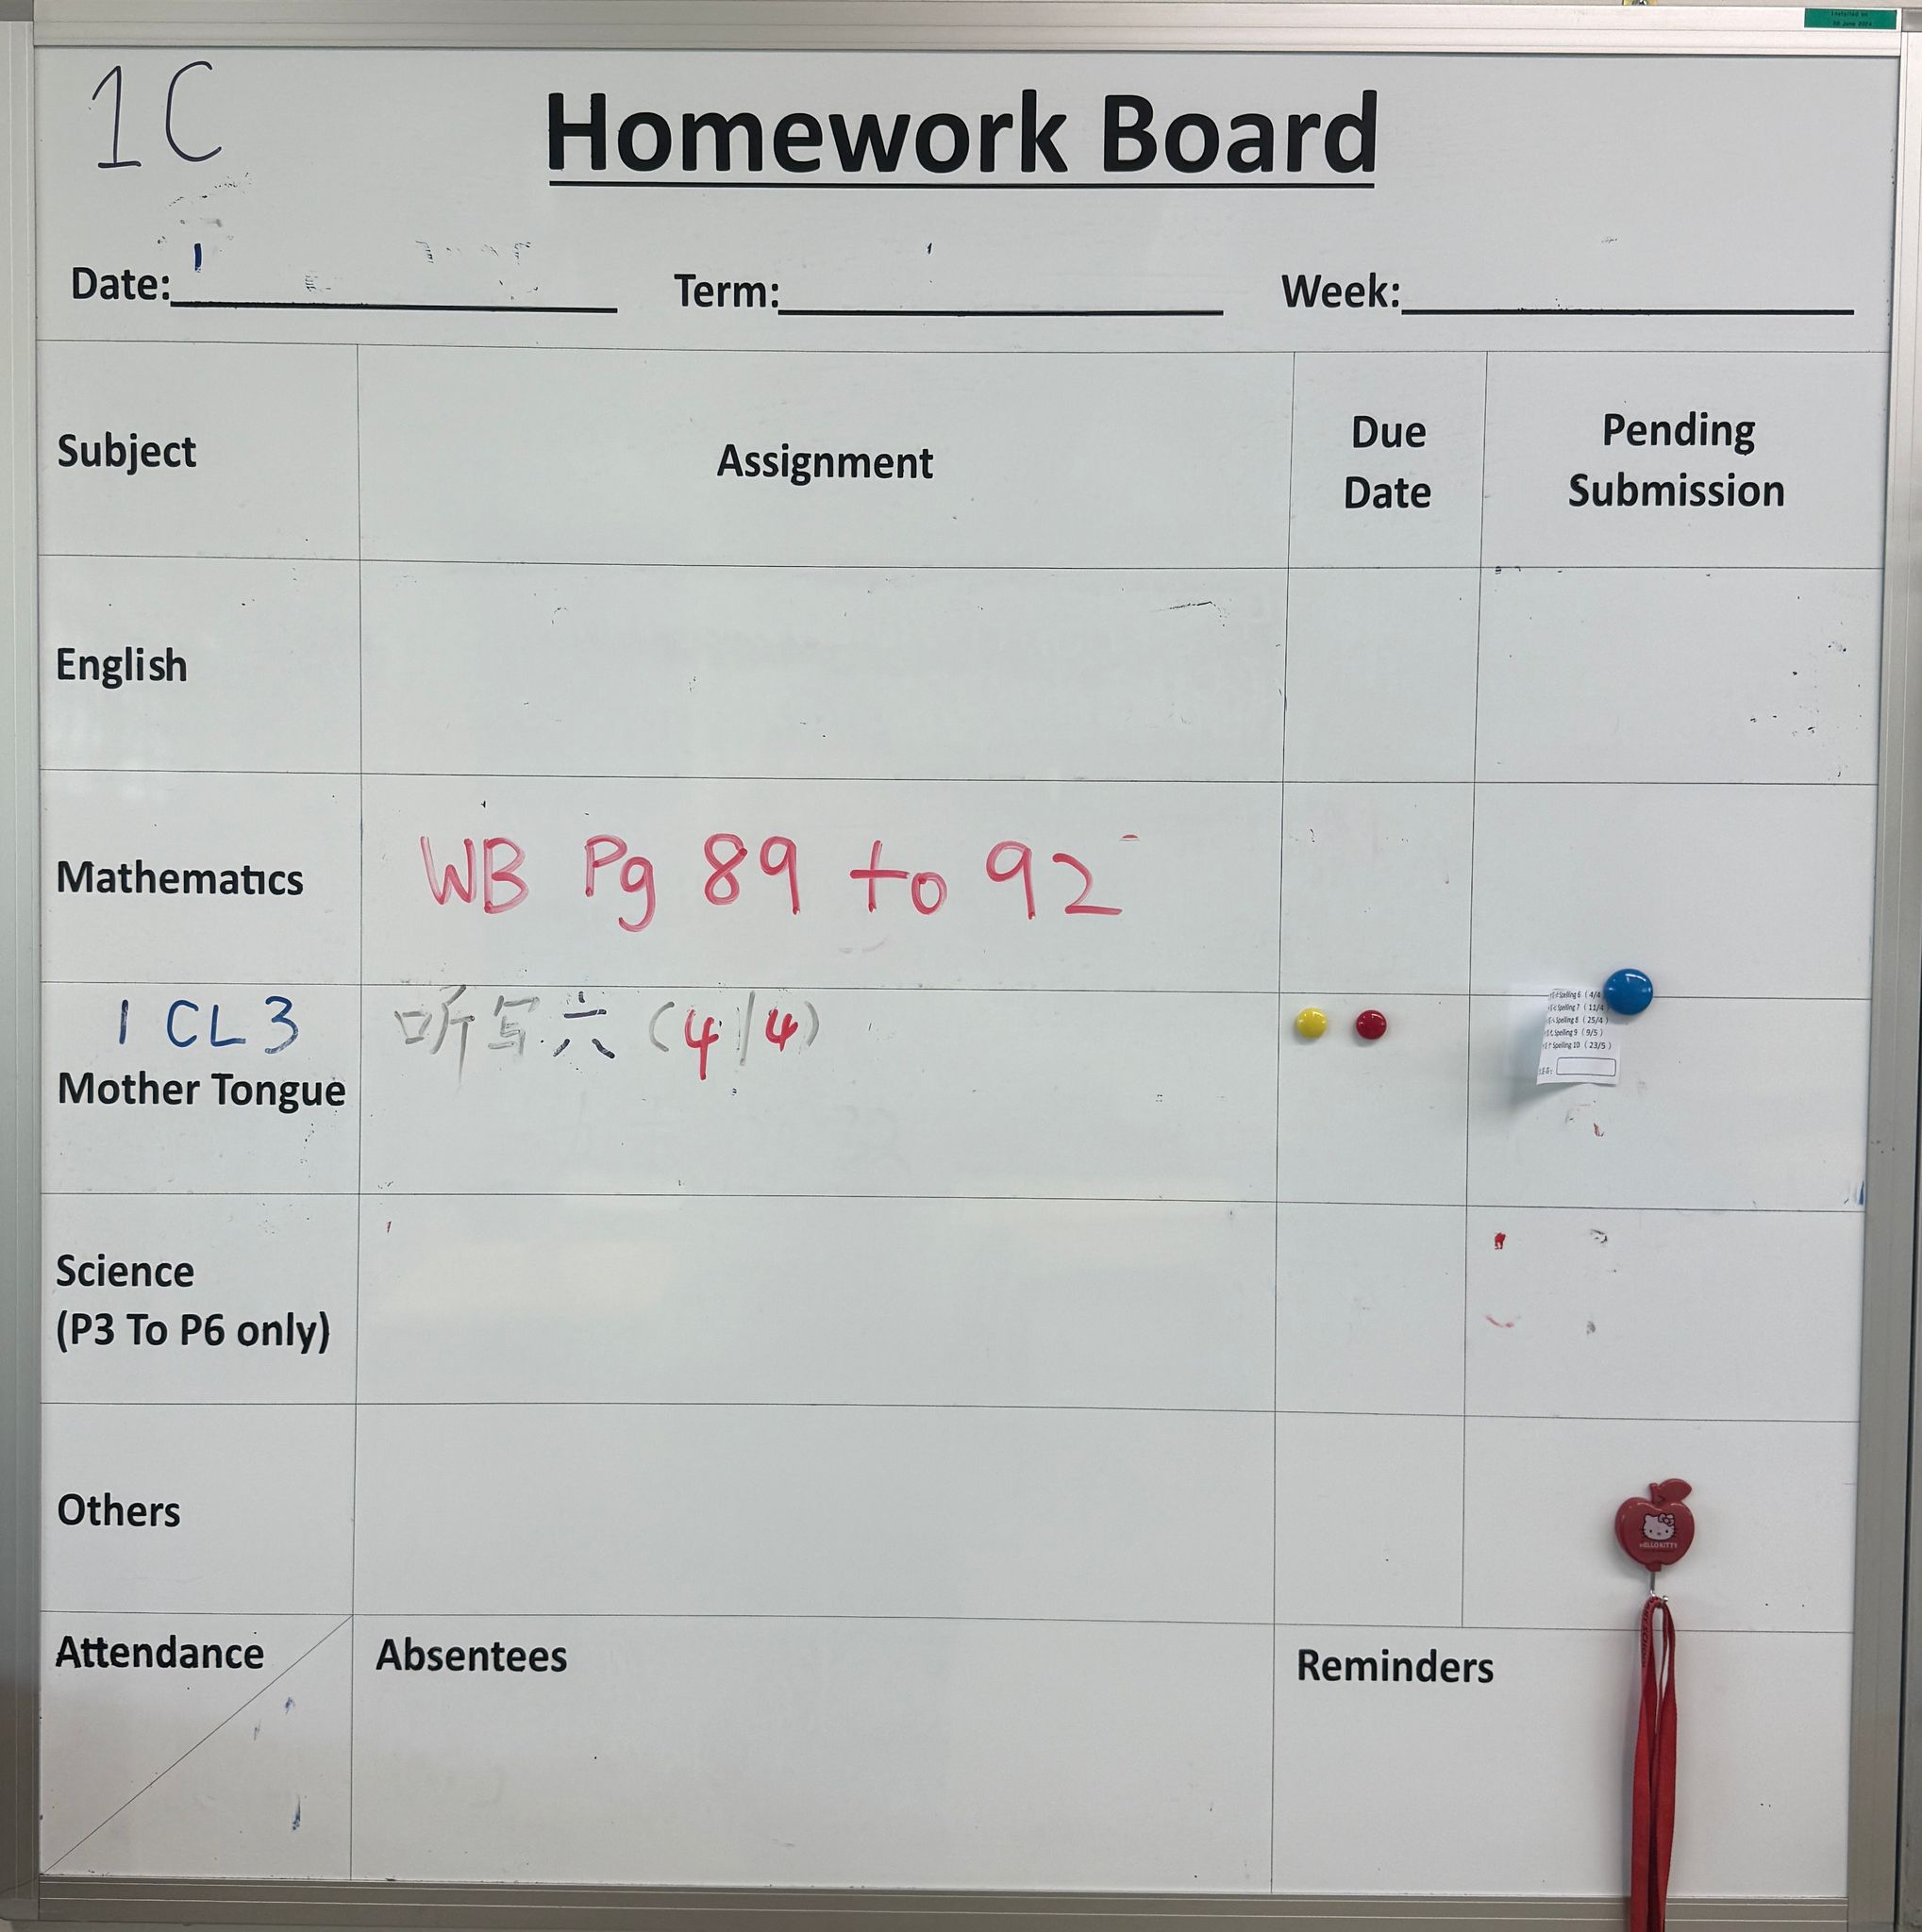 Installed on
1C
Homework Board
Date: Term: Week:
Subject Assignment Due Date Pending Submission
English
Mathematics WB Pg 89 to 92
1 CL 3
Mother Tongue
听写六 (4/4)
Spelling 6 ( 4/4
Spelling 7 ( 11/4
Spelling 8 ( 25/4 )
Spelling 9 ( 9/5 )
Spelling 10 ( 23/5 )
Science
(P3 To P6 only)
Others
HELLO KITTY
Attendance Absentees Reminders